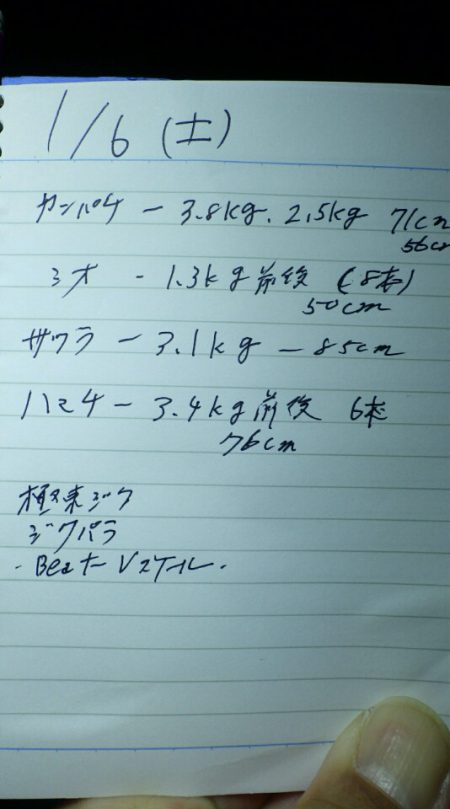 1/6 (土)
カンパチ - 3.8kg. 2.5kg 71cm
56cm
ツオ - 1.3kg前後 (8本)
50cm
サワラ - 3.1kg - 85cm
ハマチ - 3.4kg前後 6本
76cm
ジク
ジクパラ